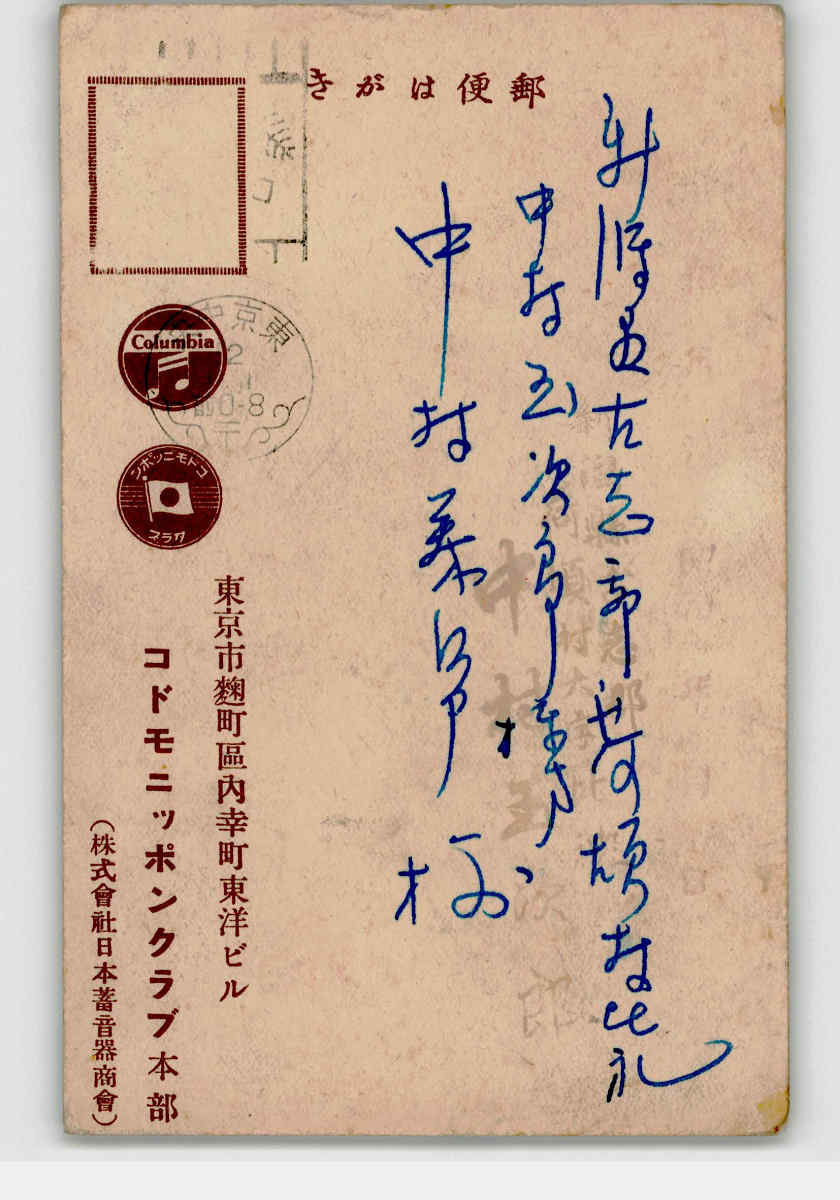 郵便はがき
新潟县古志郡荷頃村比礼
中村玉次郎様方
中村 様
東京中
前0-8
Columbia
コドモニッポン
クラブ
東京市麴町區内幸町東洋ビル
コドモニッポンクラブ本部
(株式會社日本蓄音器商會)